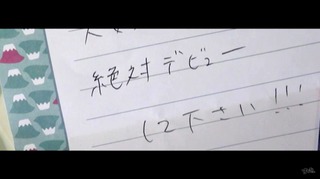 絶対デビュー
して下さい!!!